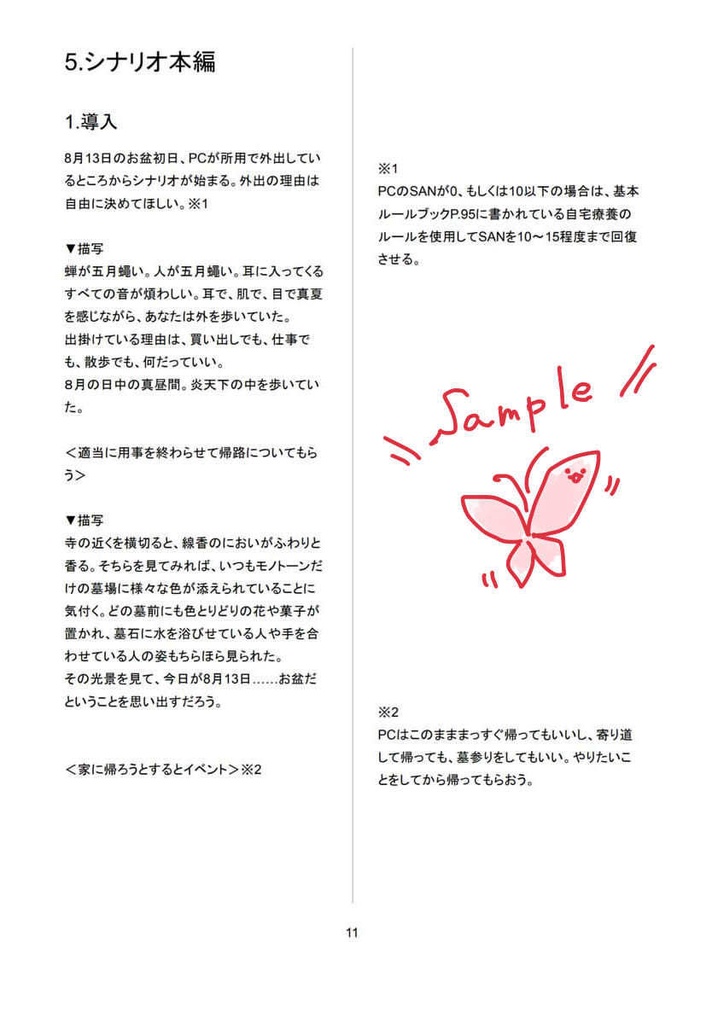 5.シナリオ本編
1.導入
8月13日のお盆初日、PCが所用で外出してい
るところからシナリオが始まる。外出の理由は
自由に決めてほしい。※1
▼描写
蝉が五月蠅い。人が五月蠅い。耳に入ってくる
すべての音が煩わしい。耳で、肌で、目で真夏
を感じながら、あなたは外を歩いていた。
出掛けている理由は、買い出しでも、仕事で
も、散歩でも、何だっていい。
８月の日中の真昼間。炎天下の中を歩いてい
た。
＜適当に用事を終わらせて帰路についてもら
う＞
▼描写
寺の近くを横切ると、線香のにおいがふわりと
香る。そちらを見てみれば、いつもモノトーンだ
けの墓場に様々な色が添えられていることに
気付く。どの墓前にも色とりどりの花や菓子が
置かれ、墓石に水を浴びせている人や手を合
わせている人の姿もちらほら見られた。
その光景を見て、今日が8月13日……お盆だ
ということを思い出すだろう。
＜家に帰ろうとするとイベント＞※2
※1
PCのSANが0、もしくは10以下の場合は、基本
ルールブックP.95に書かれている自宅療養の
ルールを使用してSANを10～15程度まで回復
させる。
Sample
※2
PCはこのまままっすぐ帰ってもいいし、寄り道
して帰っても、墓参りをしてもいい。やりたいこ
とをしてから帰ってもらおう。
11